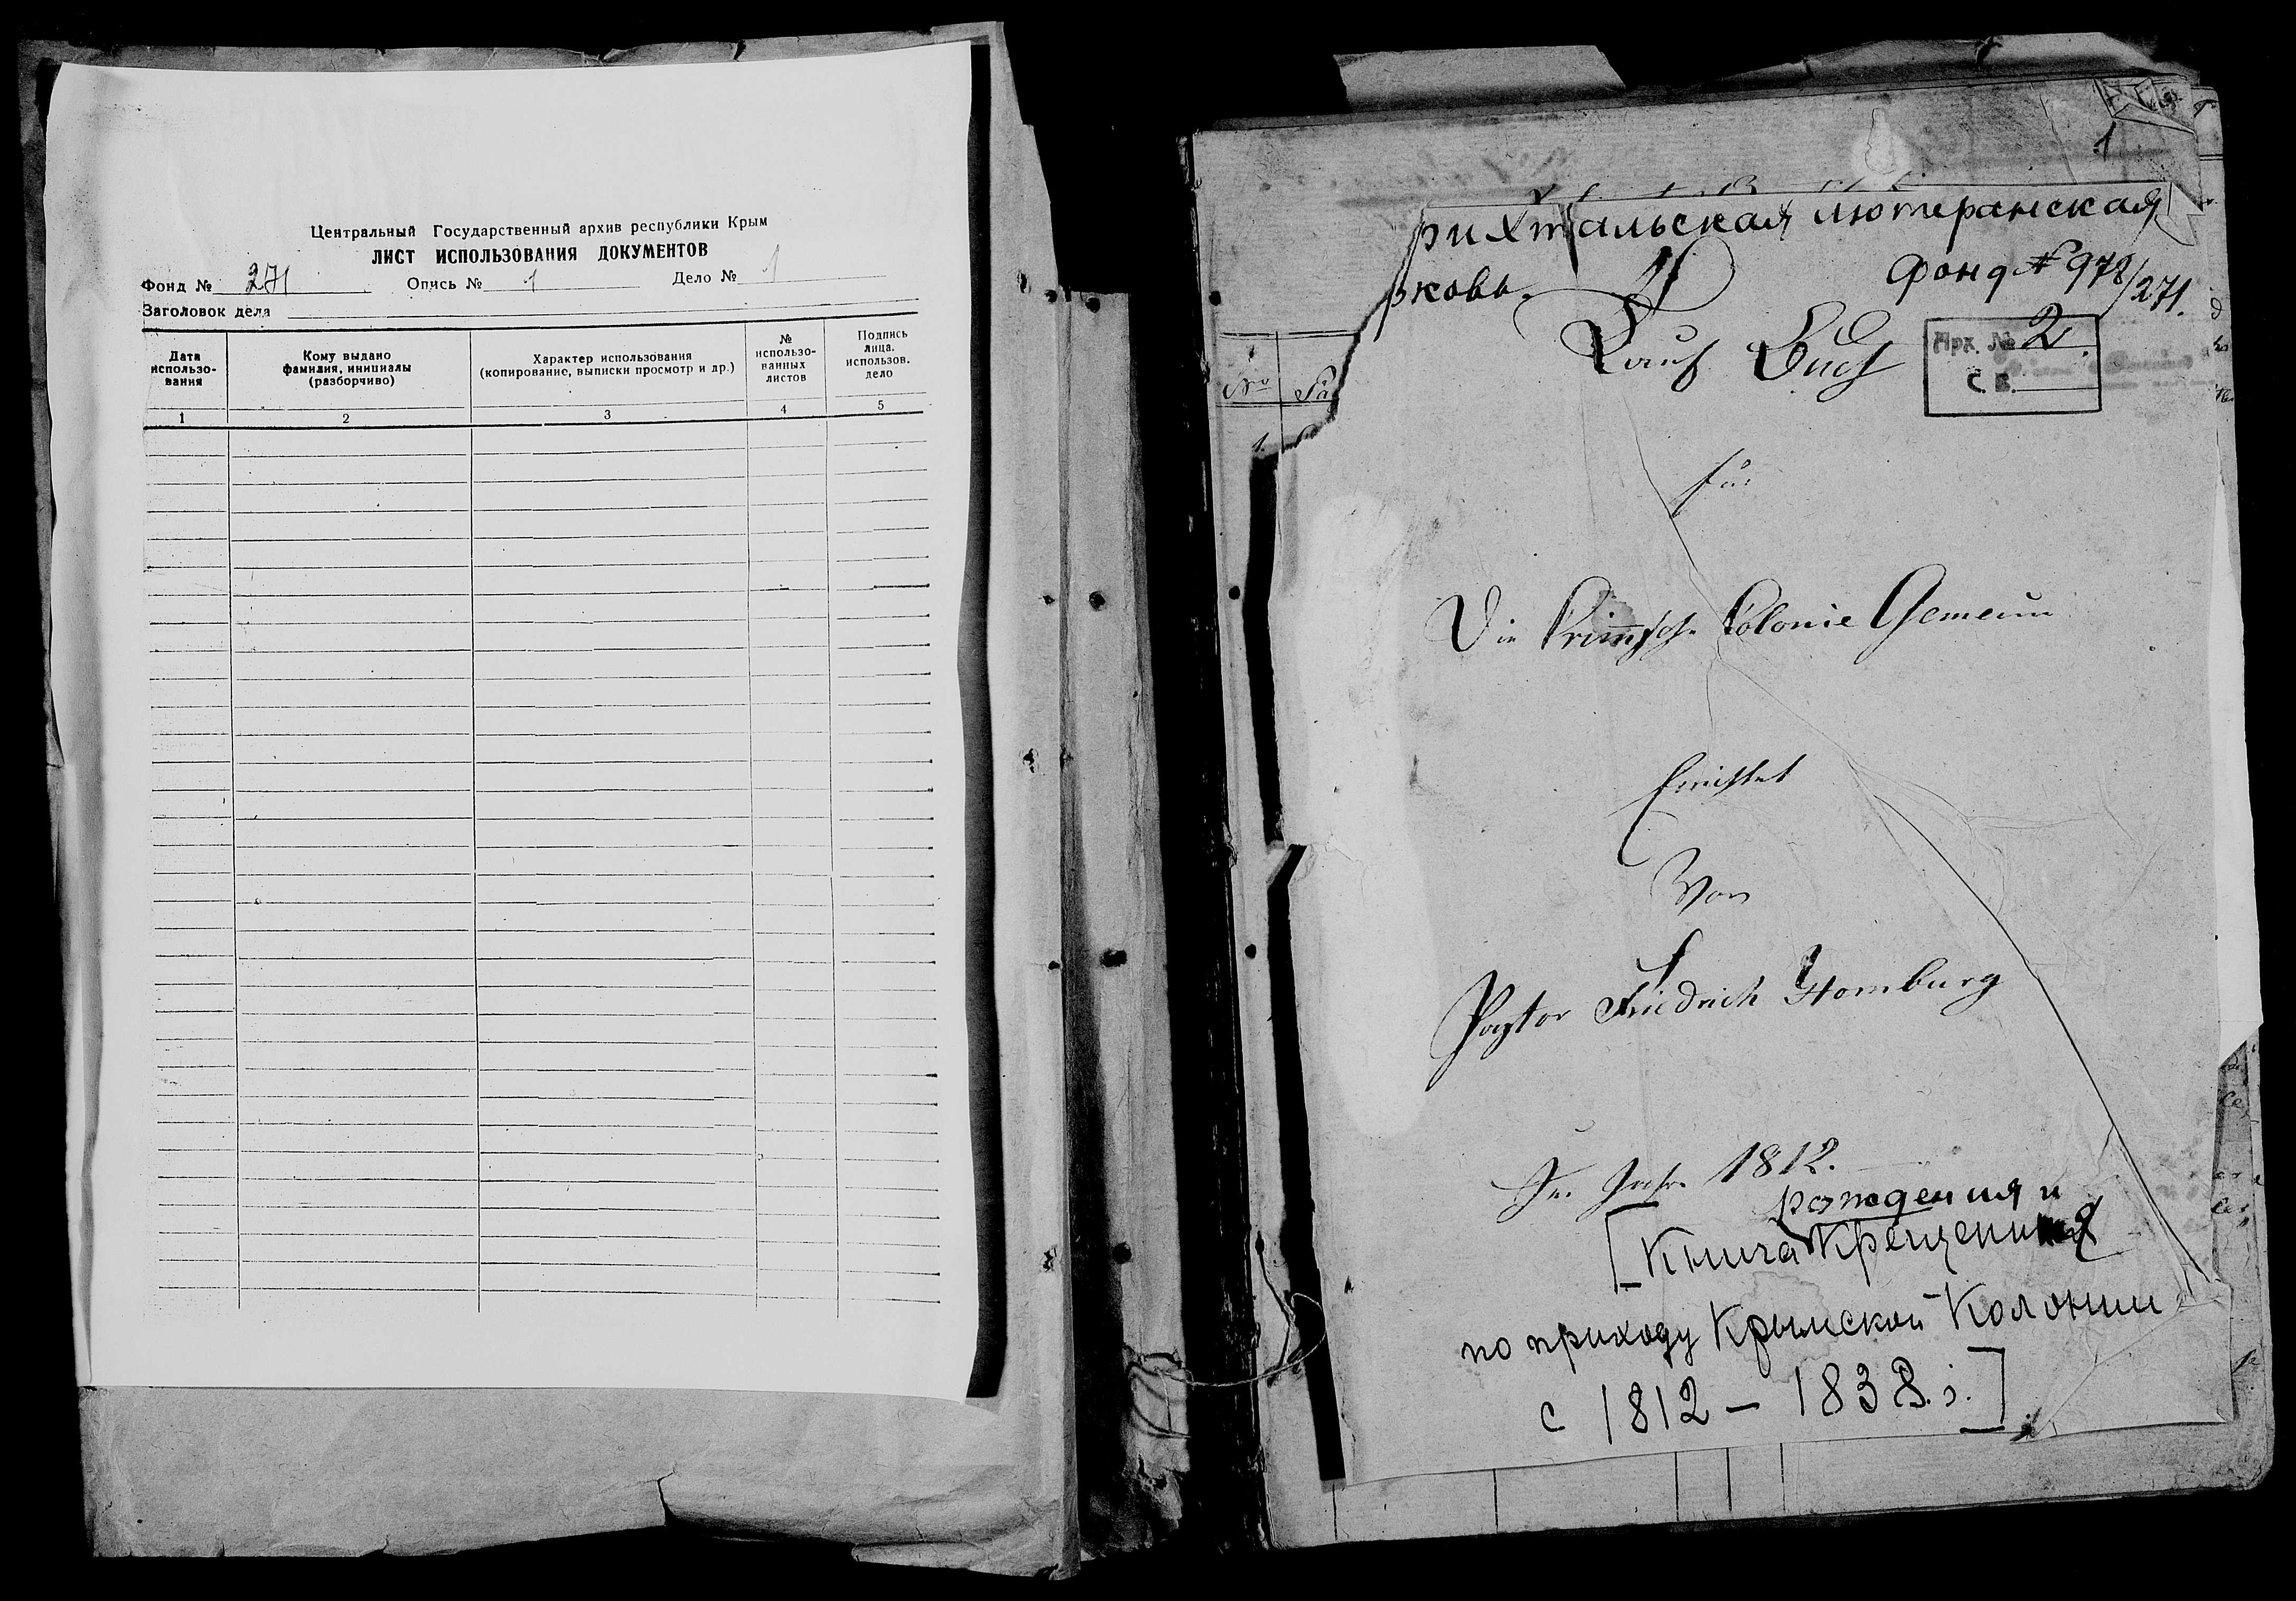 Центральный Государственный архив республики Крым
ЛИСТ ИСПОЛЬЗОВАНИЯ ДОКУМЕНТОВ
Фонд № 271 Опись № 1 Дело № 1
Заголовок дела
Дата использо-вания
Кому выдано фамилия, инициалы (разборчиво)
Характер использования (копирование, выписки просмотр и др.)
№ использо-ванных листов
Подпись лица. использов. дело
1 2 3 4 5
1
рихтальская лютеранская
рковь.
Фонд № 972/271.
Tauf Buch
Арх. № 2.
С. В.
No
1.
für
Die Krimmsche Colonie Gemeine
Errichtet
Von
Pastor Friedrich Homburg
Im Jahre 1812.
рождения и
[Книга Крещения
по приходу Крымской Колонии
с 1812 – 1838 г.]